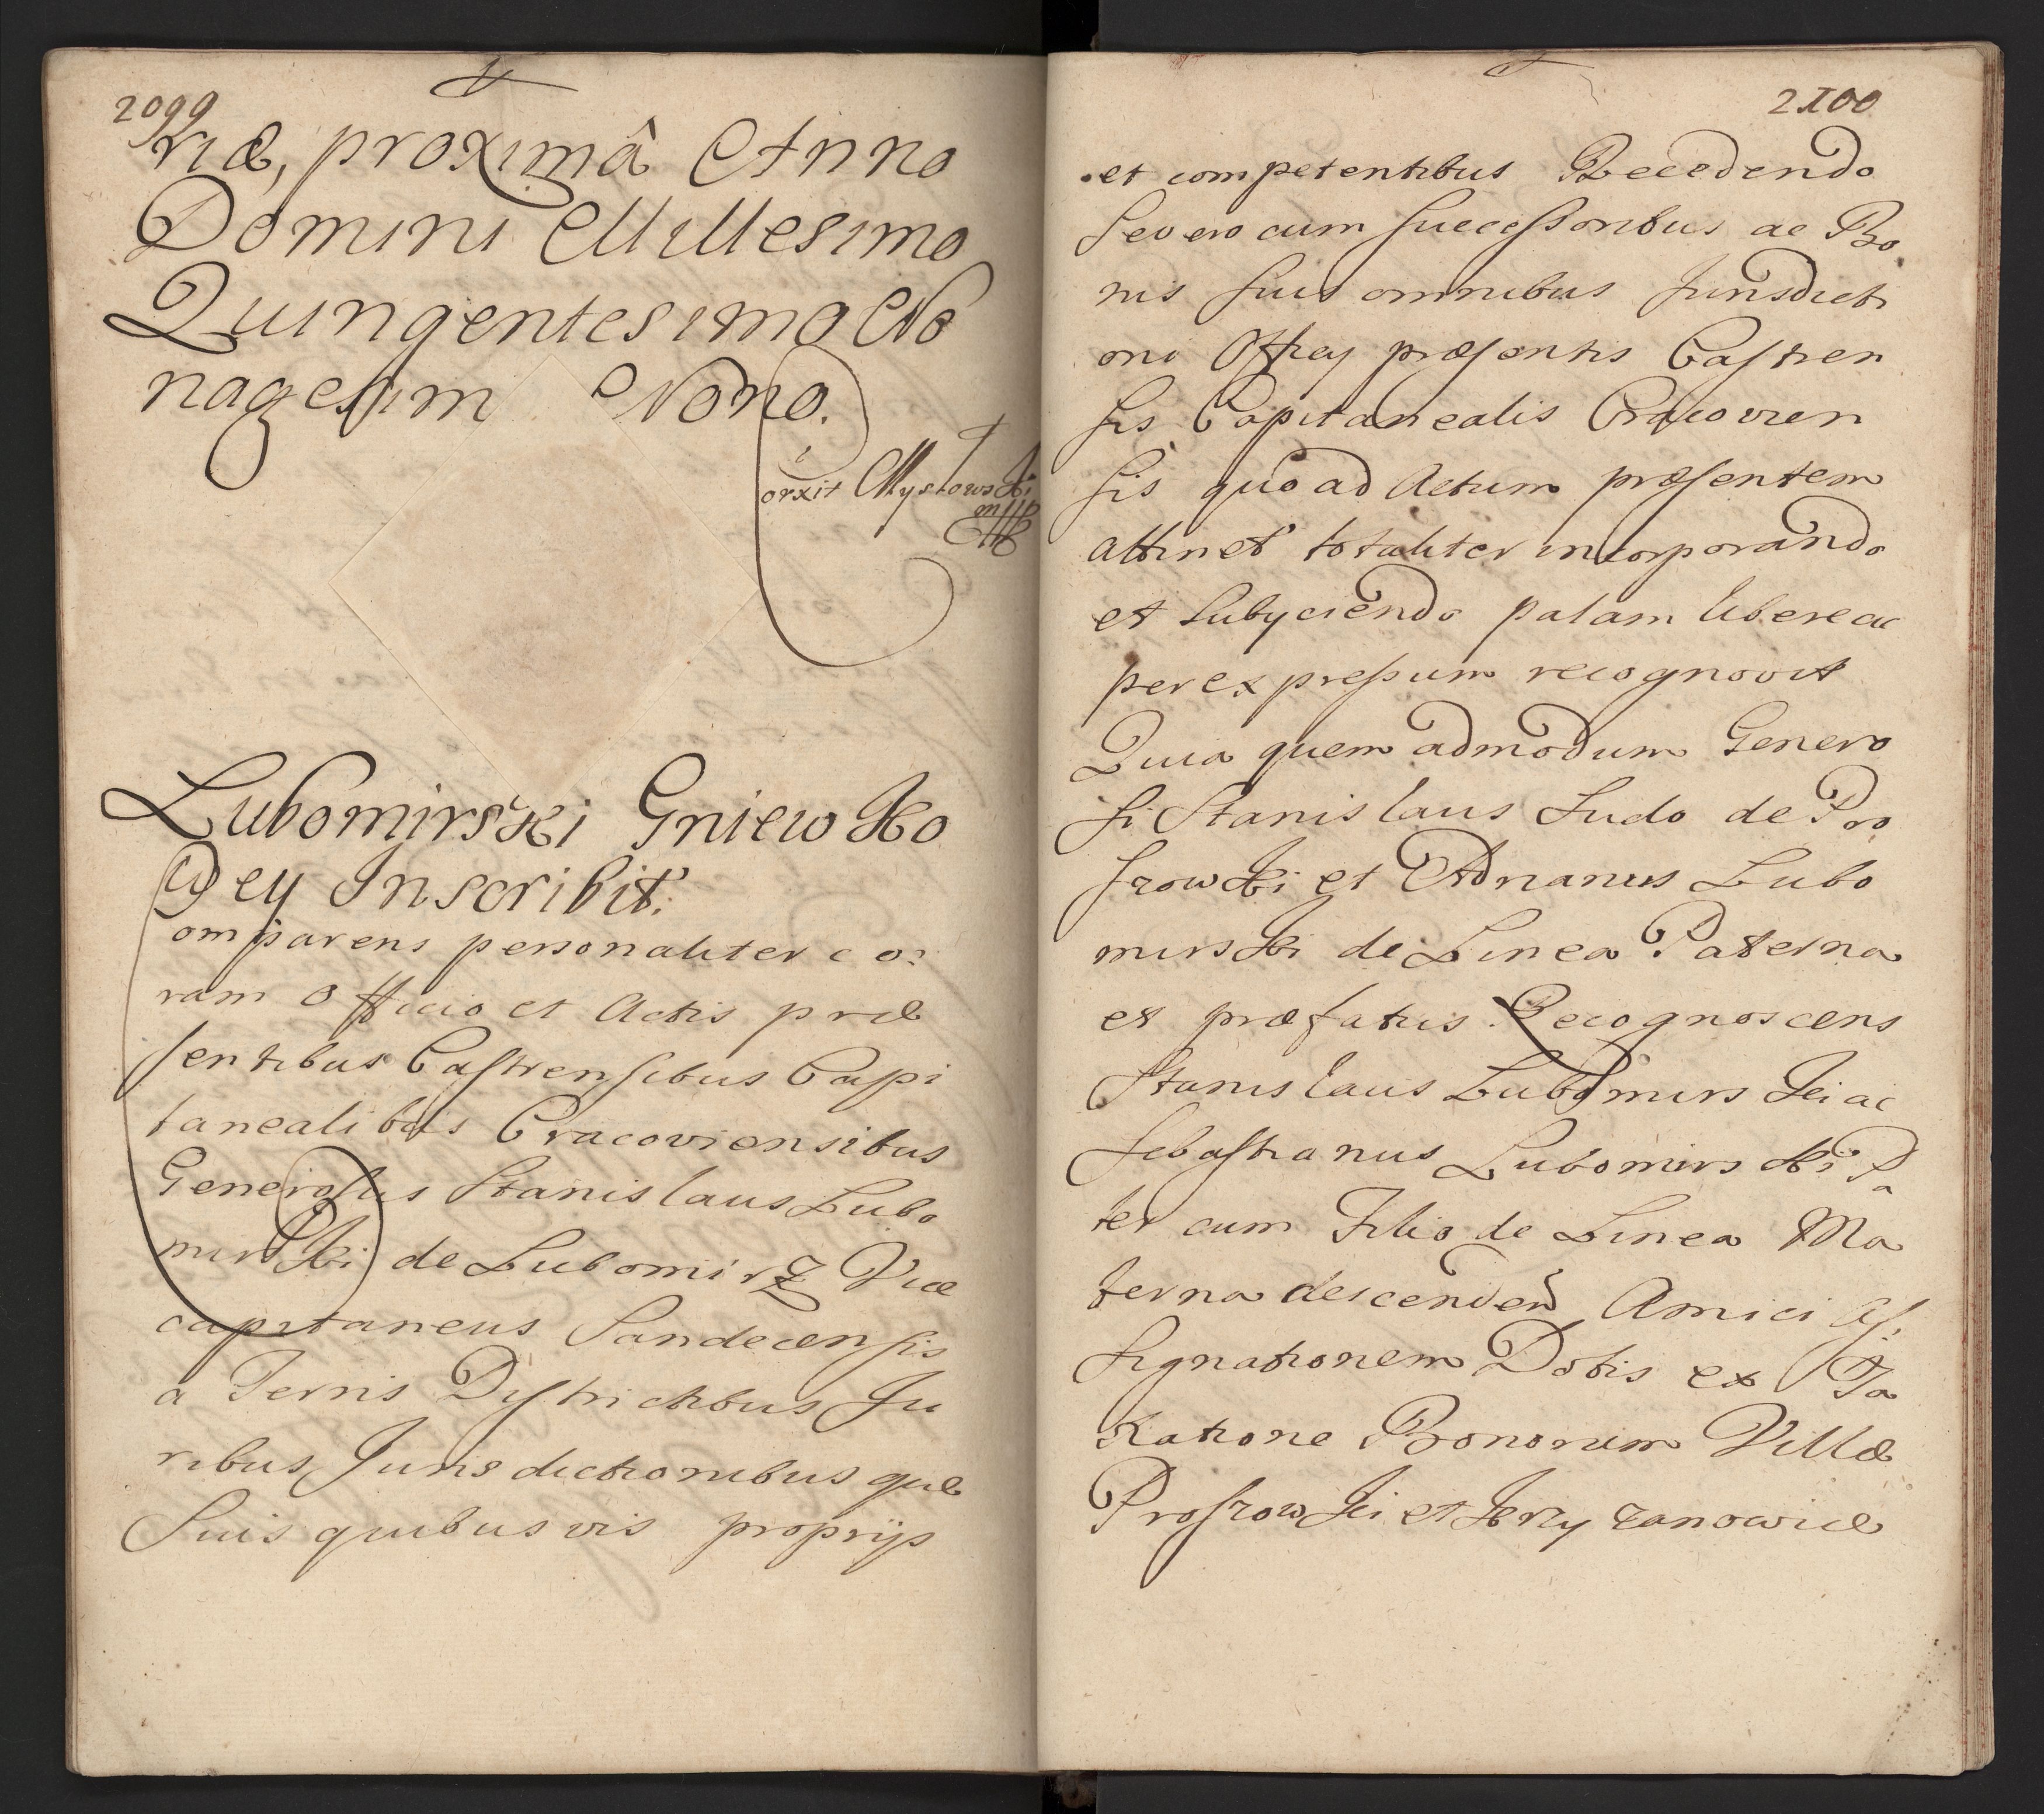 2099
riæ, proximâ Anno
Domini Millesimo
Quingentesimo No
nagesim Nono.
Mysłowski
mpp
Lubomirski Gniewko
wey Inscribit.
Comparens personaliter co:
ram Officio et Actis præ
sentibus Castrensibus Capi
tanealibus Cracoviensibus
Generosus Stanislaus Lubo
mirski de Lubomirz Vice
capitaneus Sandecensis
a Terris Districtibus Ju
ribus Jurisdictionibusque
Suis quibusvis proprijs
2100
et competentibus Recedendo
severo cum successoribus ac Bo
nis suis omnibus Jurisdicti
oni Officij præsentis Castren
sis Capitanealis Cracovien
sis quo ad Actum præsentem
attinet totaliter incorporando
et subyciendo palam libere ac
per expressum recognovit
Quia quemadmodum Genero
si Stanislaus Ludo de Pro
szowki et Adrianus Lubo
mirski de Linea Paterna
et præfatus Recognoscens
Stanislaus Lubomirski ac
Sebastianus Lubomirski Pa
ter cum Filio de Linea Ma
terna descenden Amici As
signationem Dotis ex Ta
xatione Bonorum Villæ
Proszowki et Jerzy zanowice